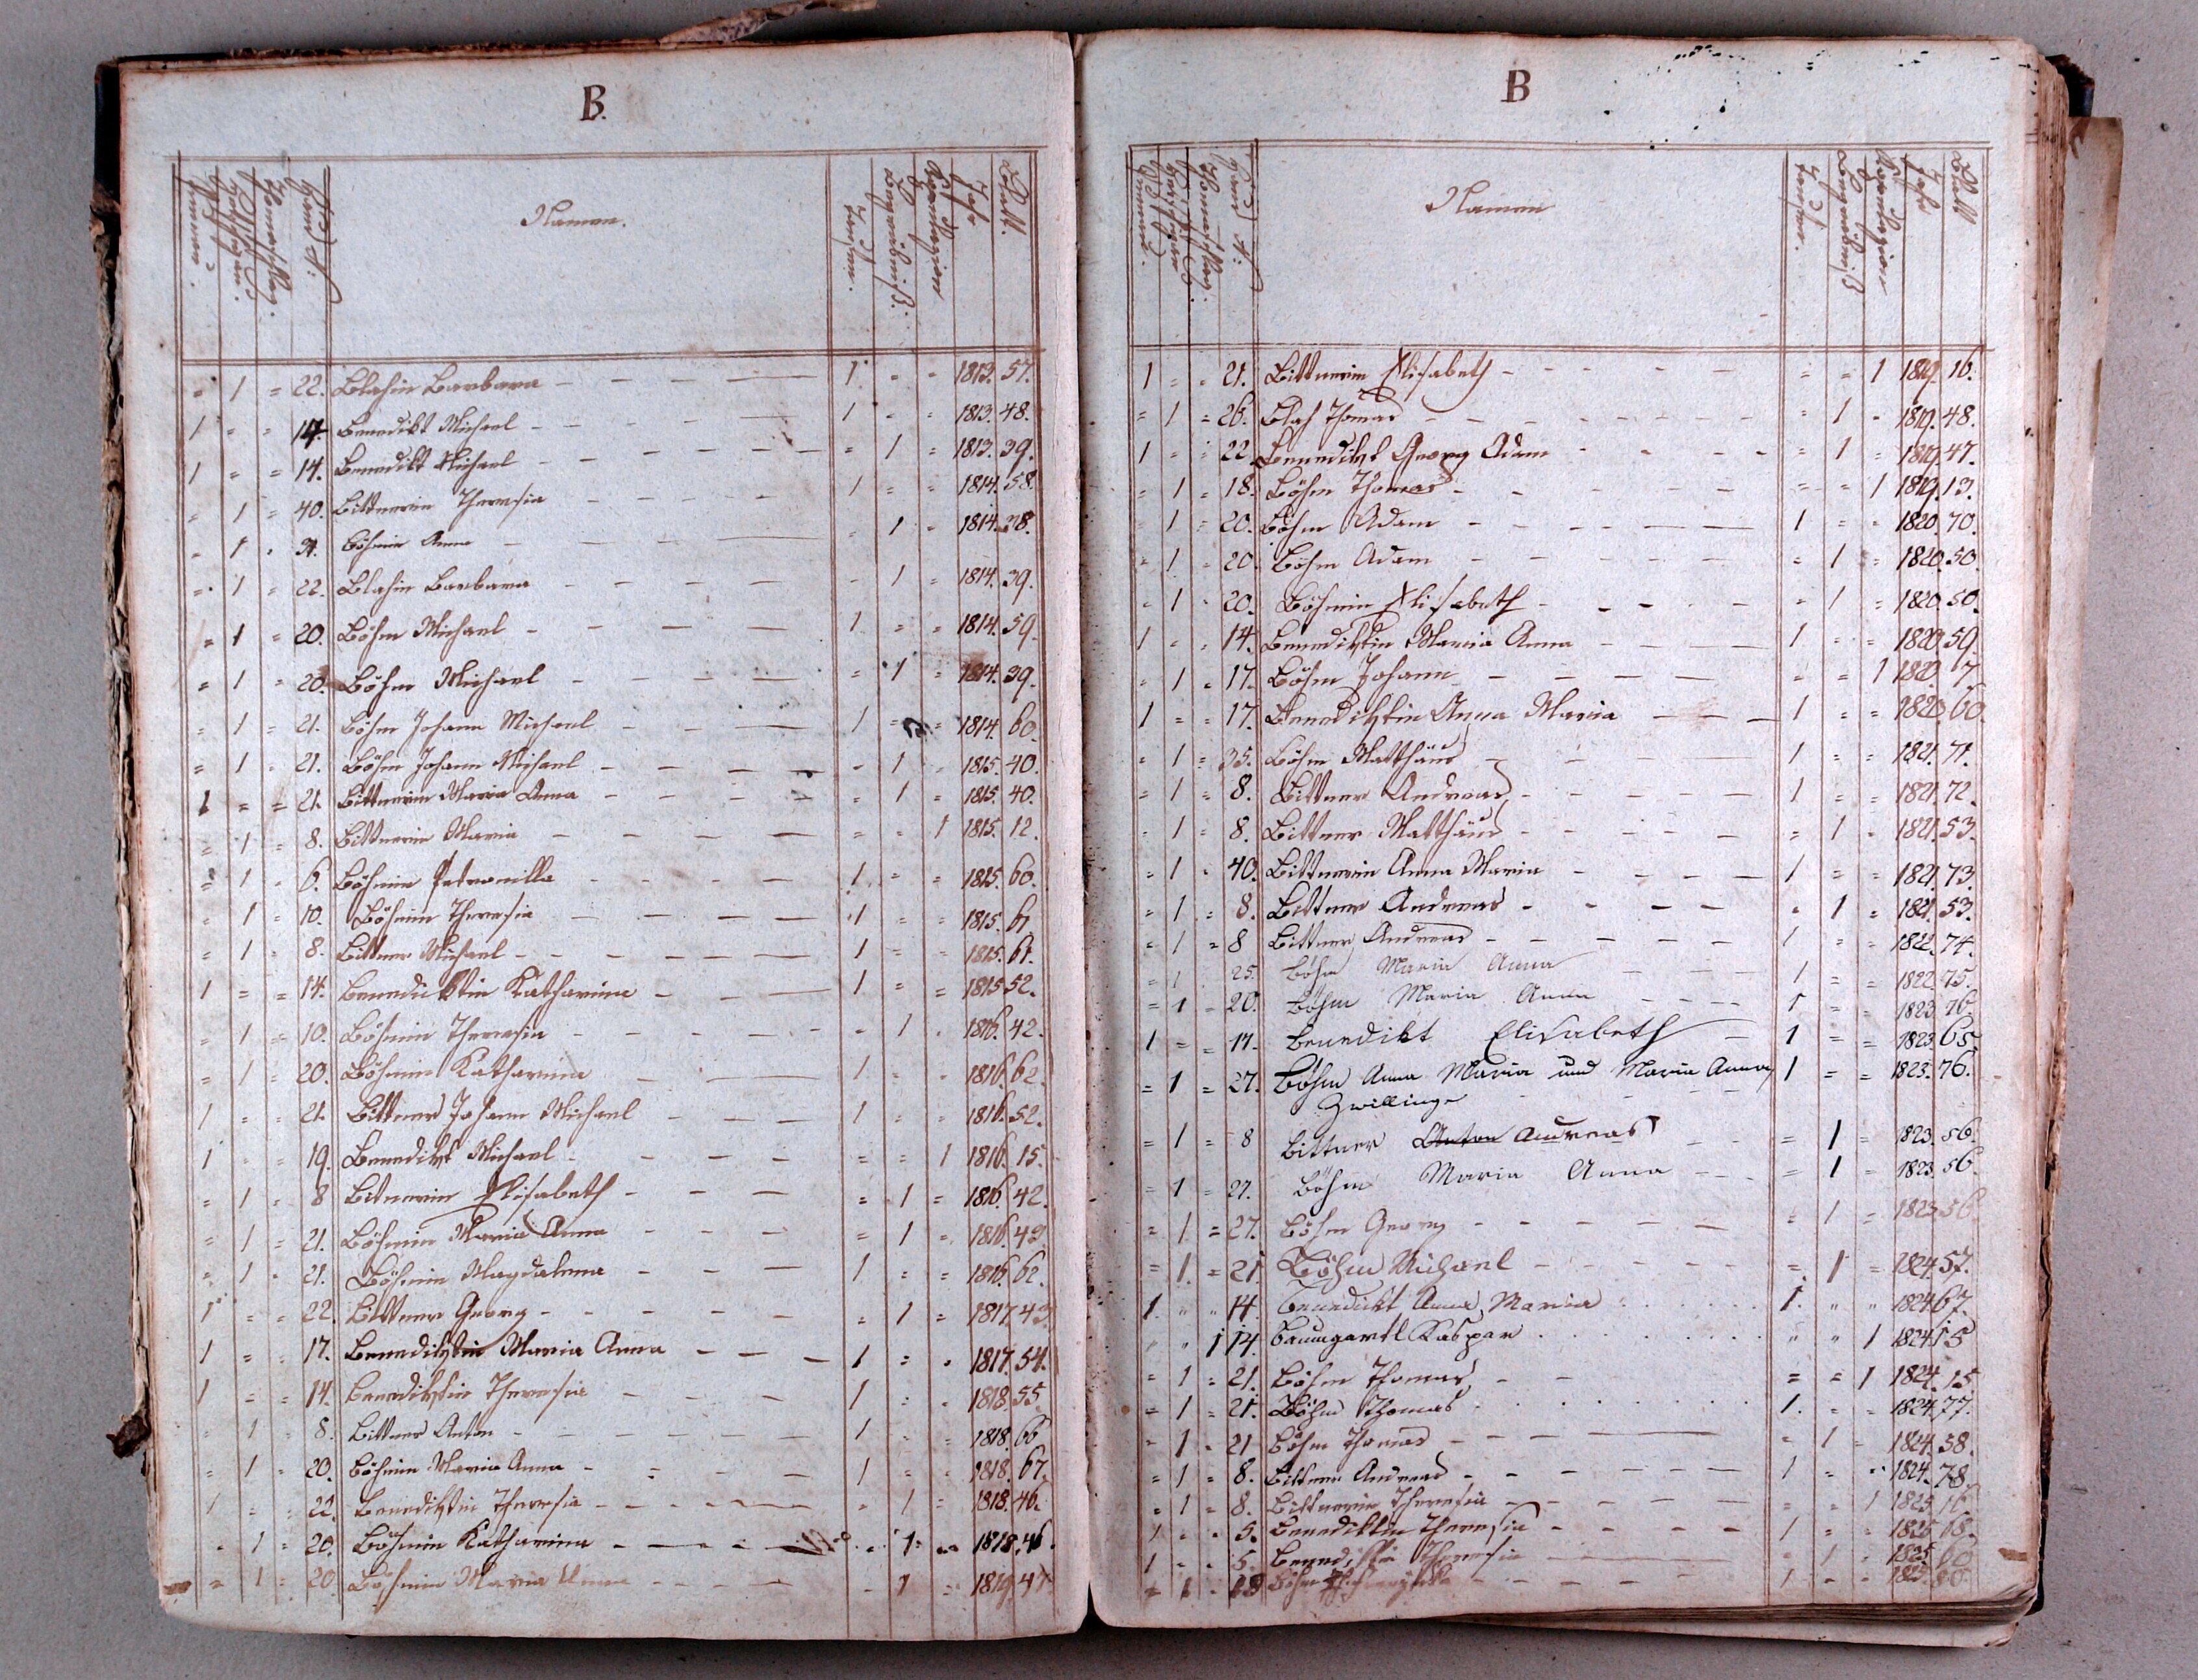 B.
Namen.
Haus N:
Taufen.
Begräbniß.
Kopulazion
Jahr
Blatt.
= 1 = 22. Blahin Barbara 1 = = 1813. 57.
1 = = 14. Benedikt Michael 1 = = 1813. 48.
1 = = 14. Benedikt Michael = 1 = 1813. 39.
= 1 = 40. Bittnerin Theresia 1 = = 1814. 58.
= 1 = Böhmin Anna = 1 = 1814. 38.
= 1 = 22. Blahin Barbara = 1 = 1814. 39.
= 1 = 20. Böhm Michael 1 = = 1814. 59.
= 1 = 20. Böhm Michael = 1 = 1814. 39.
= 1 = 21. Böhm Johann Michael 1 = = 1814. 60.
= 1 = 21. Böhm Johann Michael = 1 = 1815. 40.
1 = = 21. Bittnerin Maria Anna = 1 = 1815. 40.
= 1 = 8. Bittnerin Maria = = 1 1815. 12.
= 1 = 6. Böhmin Petronilla 1 = = 1815. 60.
= 1 = 10. Böhmin Theresia 1 = = 1815. 61
= 1 = 8. Bittner Michael 1 = = 1815. 61.
1 = = 14. Benediktin Katharina 1 = = 1815 52.
= 1 = 10. Böhmin Theresia = 1 = 1816. 42.
= 1 = 20. Böhmin Katharina 1 = = 1816. 62.
1 = = 21. Bittner Johann Michael 1 = = 1816. 52.
1 = = 19. Benedikt Michael = = 1 1816. 15.
= 1 = 8 Bitnerin Elisabeth = 1 = 1816. 42.
= 1 = 21. Böhmin Maria Anna = 1 = 1816. 43
= 1 = 21. Böhmin Magdalena 1 = = 1816. 62.
1 = = 22. Bittner Georg = 1 = 1817. 43.
1 = = 17. Benediktin Maria Anna 1 = = 1817. 54.
1 = = 14. Benediktin Theresia 1 = = 1818. 55.
= 1 = 8. Bittner Anton 1 = = 1818. 66
= 1 = 20. Böhmin Maria Anna 1 = = 1818. 67.
1 = = 22. Benediktin Theresia = 1 = 1818. 46.
= 1 = 20. Böhmin Katharina = 1 = 1818. 46.
= 1 = 20 Böhmin Maria Anna = 1 = 1819. 47
B
Namen
Haus N:
Taufen.
Begräbniß
Kopulazion
Jahr
Blatt
1 = = 21. Bittnerin Elisabeth = = 1 1819. 16.
= 1 = 26. Blah Thomas = 1 = 1819. 48.
1 = = 22. Benedikt Georg Adam = 1 = 1819. 47.
= 1 = 18. Böhm Thomas = = 1 1819. 13.
= 1 = 20. Böhm Adam 1 = = 1820. 70.
= 1 = 20. Böhm Adam = 1 = 1820. 50.
= 1 = 20. Böhmin Elisabeth = 1 = 1820. 50.
1 = = 14. Benediktin Maria Anna 1 = = 1820. 59.
= 1 = 17. Böhm Johann = = 1 1820. 7
1 = = 17. Benediktin Anna Maria 1 = = 1820. 60.
= 1 = 35. Böhm Matthäus 1 = = 1821. 71.
= 1 = 8. Bittner Andreas 1 = = 1821. 72.
= 1 = 8. Bittner Matthäus = 1 = 1821. 53.
= 1 = 40. Bittnerin Anna Maria 1 = = 1821. 73.
= 1 = 8. Bittner Andreas = 1 = 1821. 53.
= 1 = 8 Bittner Andreas 1 = = 1822. 74.
= 1 25. Böhm Maria Anna 1 = = 1822. 75.
= 1 = 20. Böhm Maria Anna 1 = = 1823. 76.
1 = = 17. Benedikt Elisabeth 1 = = 1823. 65.
= 1 = 27. Böhm Anna Maria und Maria Anna 1 = = 1823. 76.
Zwillinge
= 1 = 8 Bittner Anton Andreas = 1 = 1823. 56.
= 1 = 27. Böhm Maria Anna = 1 = 1823. 56.
= 1 = 27. Böhm Georg = 1 = 1823. 56.
= 1 = 21 Böhm Michael = 1 = 1824. 57.
1 " " 14. Benedikt Anna Maria 1. " " 1824. 67.
" " 1 14. Baumgartl Kaspar " " 1 1824. 15
= 1 = 21. Böhm Thomas = = 1 1824. 15
= 1 = 21. Böhm Thomas 1. = = 1824. 77.
= 1 = 21 Böhm Thomas = 1 = 1824. 58.
= 1 = 8. Bittner Andreas 1 = = 1824. 78.
= 1 = 8. Bittnerin Theresia = = 1 1825. 16
1 = = 5. Benediktin Theresia 1 = = 1825. 68.
1 = = 5. Benediktin Theresia = 1 = 1825. 60
= 1 = Böhm 1 = = 1825. 80.